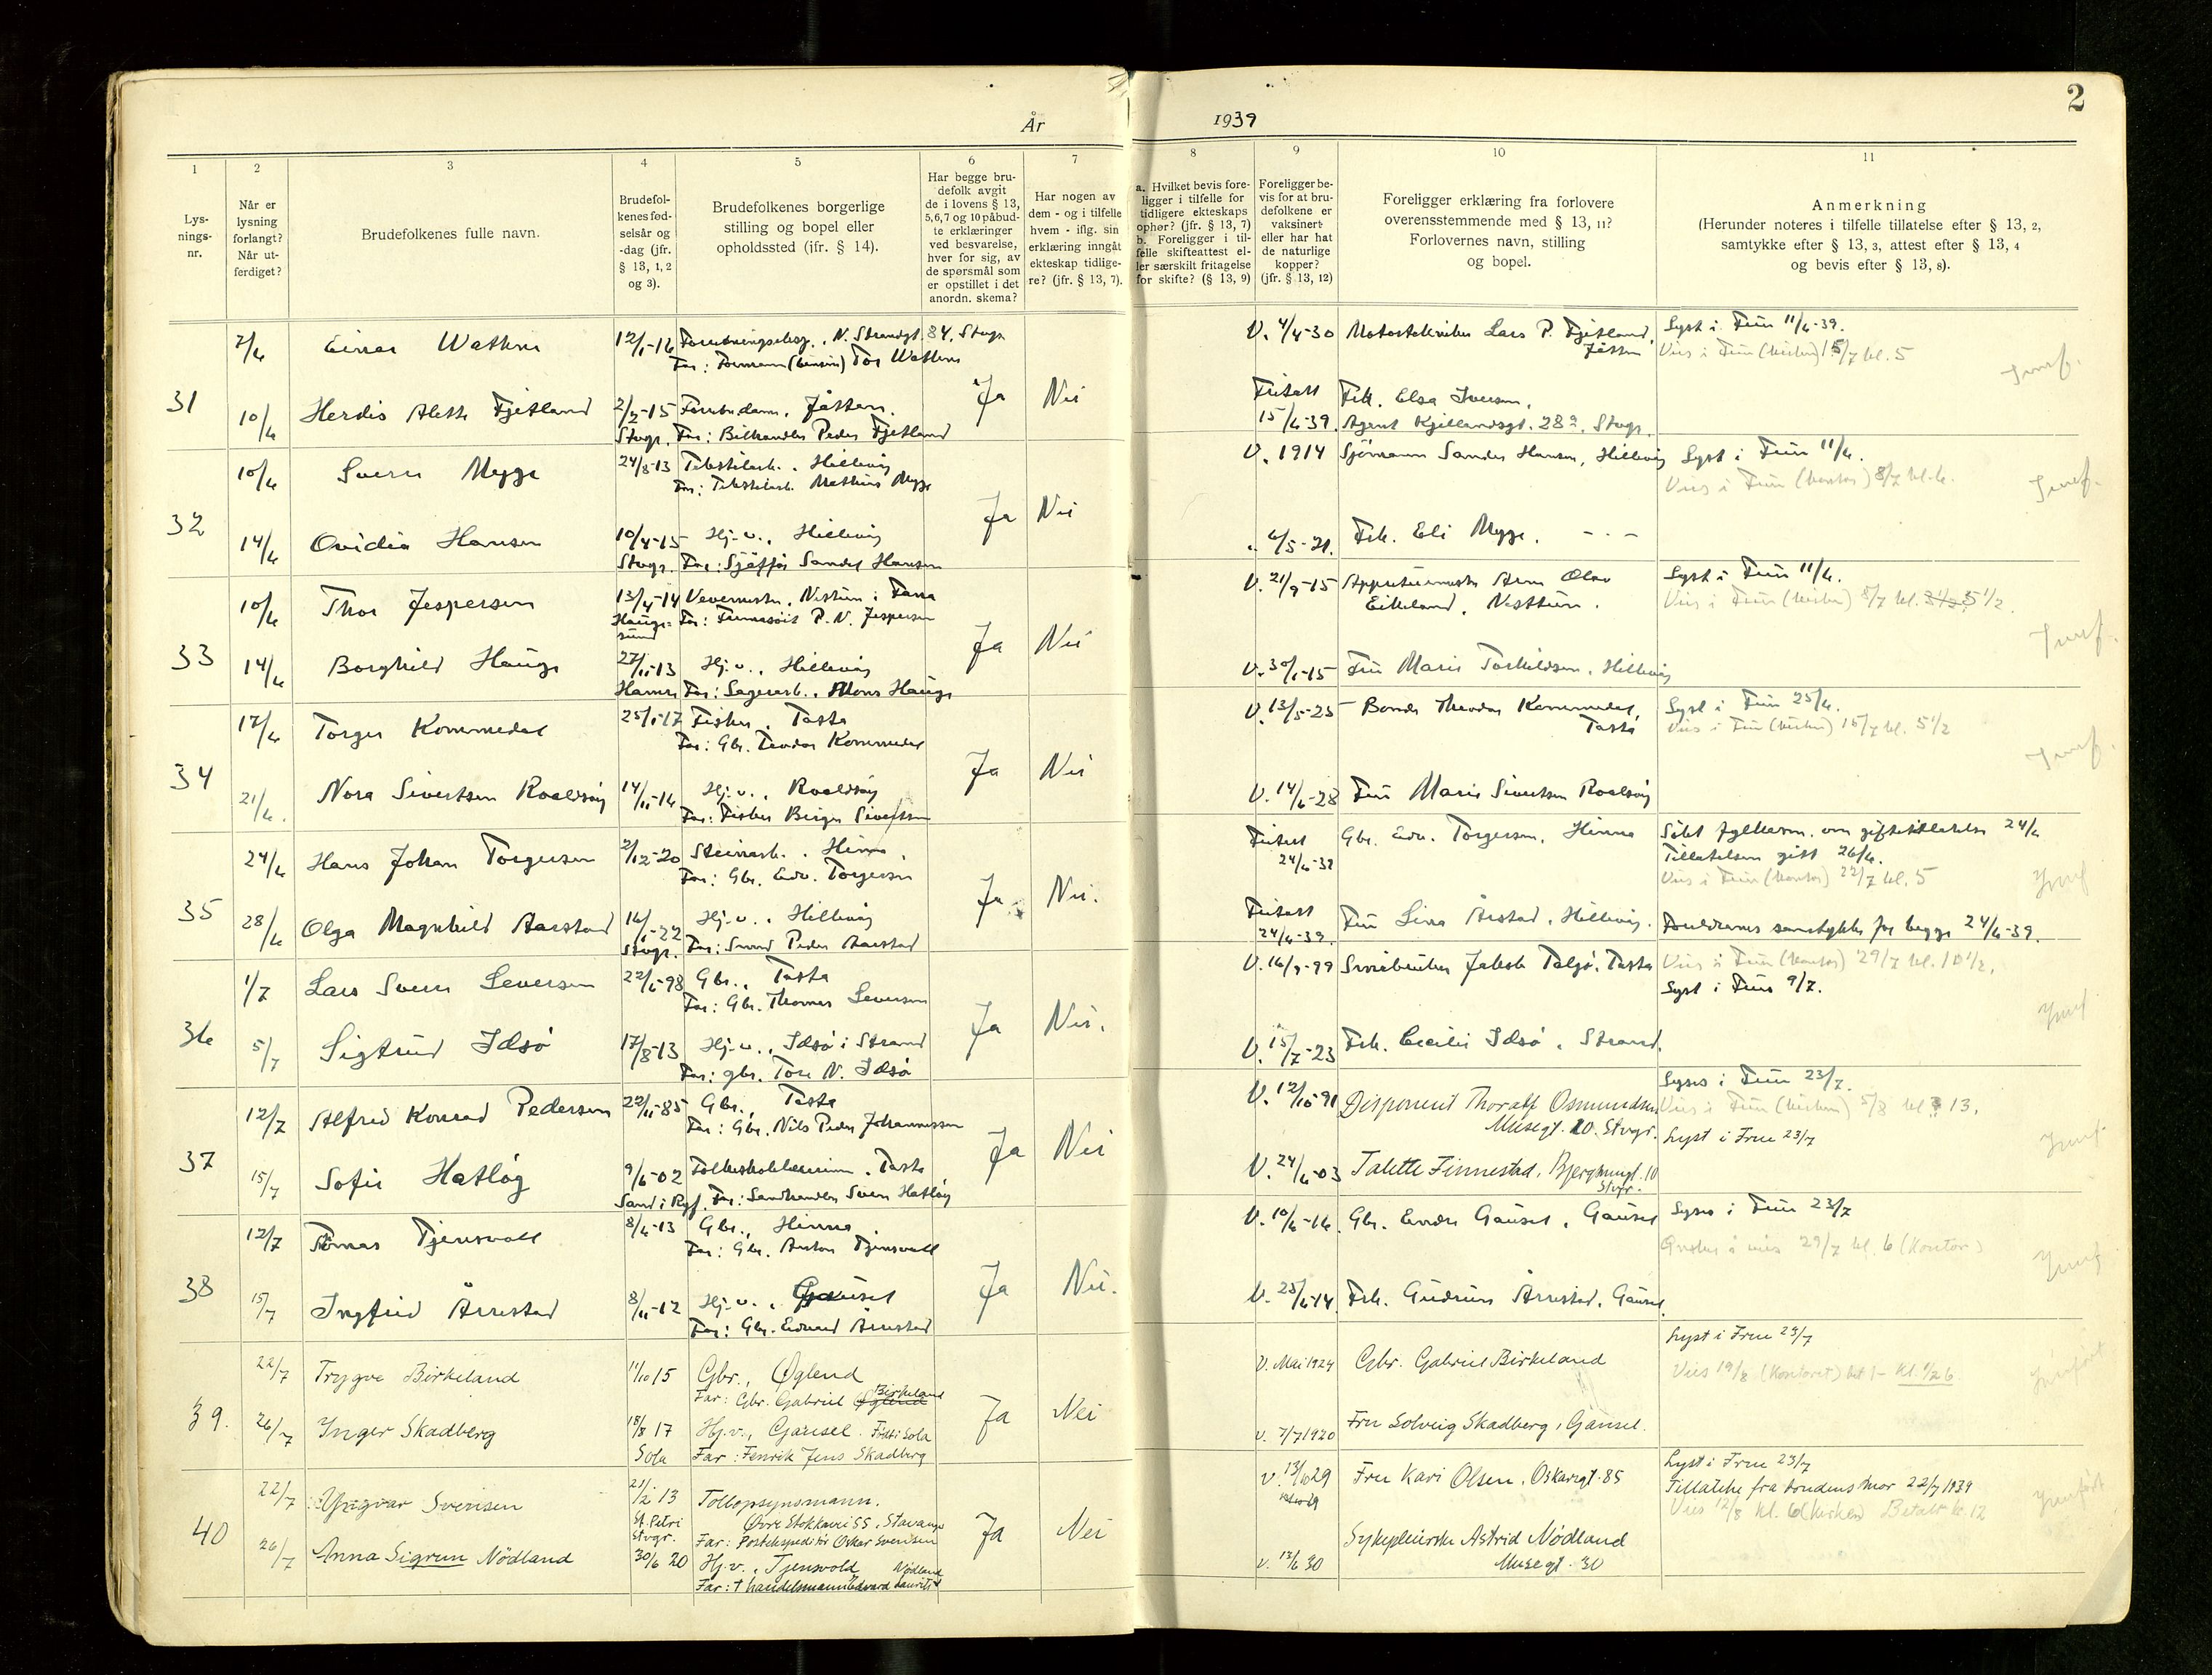 2
År 1939
1 2 3 4 5 6 7 8 9 10 11
Lys-
nings-
nr.
Når er
lysning
forlangt?
Når ut-
ferdiget?
Brudefolkenes fulle navn.
Brudefol-
kenes fød-
selsår og
-dag (jfr.
§ 13, 1, 2
og 3).
Brudefolkenes borgerlige
stilling og bopel eller
opholdssted (jfr. § 14).
Har begge bru-
defolk avgit
de i lovens § 13,
5,6,7 og 10 påbud-
te erklæringer
ved besvarelse,
hver for sig, av
de spørsmål som
er opstillet i det
anordn. skema?
Har nogen av
dem - og i tilfelle
hvem - iflg. sin
erklæring inngåt
ekteskap tidlige-
re? (jfr. § 13, 7).
a. Hvilket bevis fore-
ligger i tilfelle for
tidligere ekteskaps
ophør? (jfr. § 13, 7)
b. Foreligger i til-
felle skifteattest el-
ler særskilt fritagelse
for skifte? (§ 13, 9)
Foreligger be-
vis for at bru-
defolkene er
vaksinert
eller har hat
de naturlige
kopper?
(jfr. § 13, 12)
Foreligger erklæring fra forlovere
overensstemmende med § 13, 11?
Forlovernes navn, stilling
og bopel.
Anmerkning
(Herunder noteres i tilfelle tillatelse efter § 13, 2,
samtykke efter § 13, 3, attest efter § 13, 4
og bevis efter § 13, 8).
31
7/6 Einar Wathne
Far: Formann (bensin) Tor Wathne
V. 4/4-30 Lars P. Fjetland,
Jåtten
Lyst i Frue 11/6-39.
Vies i Frue (kirken) 15/7 kl. 5
10/6 Herdis Alette Fjetland 2/2-15 Jåtten.
Stvgr. Far: Bilhandler Peder Fjetland
Ja Nei
Fritatt
15/6-39.
Frk. Elsa Iversen,
Agent Kjellandsgt. 28a. Stvgr.
32
10/6 Sverre Mygge 24/8-13 Tekstilarb., Hillevåg
Far: Tekstilarb. Mathias Mygge
V. 1914 Sjömann Sander Hansen, Hillevåg
Lyst i Frue 11/6.
Vies i Frue (kontor) 8/7 kl. 6.
14/6 Ovidia Hansen 10/4-15 Hj.v., Hillevåg
Stvgr. Far: Sander Hansen
Ja Nei
6/5-21. Frk. Eli Mygge. - - -
33
10/6 Thor Jespersen 13/4-14 Vevermester, Nesttun i Fana
Hauge-
sund
Far: P. N. Jespersen
V. 21/9-15 Arne Olav
Eikeland, Nesttun.
Lyst i Frue 11/6.
Vies i Frue (kirken) 8/7 kl. 5 1/2.
14/6 Borghild Hauge 27/11-13 Hj.v., Hillevåg
Hamre Far: Sagarb., Mons Hauge
Ja Nei
V. 30/1-15 Fru Marie Torkildsen, Hillevåg
34
17/6 Torger Kommedal 25/1-17 Fisker, Tasta
Far: Gbr. Teodor Kommedal
V. 13/5-25 Bonde Theodor Kommedal,
Tasta
Lyst i Frue 25/6.
Vies i Frue (kirken) 15/7 kl. 5 1/2
21/6. Nora Sivertsen Roaldsøy 14/11-16 Hj.v., Roaldsøy
Far: Fisker Birger Sivertsen
Ja Nei
V. 14/6-28 Fru Marie Sivertsen Roaldsøy
35
24/6 Hans Johan Torgersen 2/12-20 Steinarb., Hinna.
Far: Gbr. Edv. Torgersen
Fritatt
24/6-39
Gbr. Edv. Torgersen, Hinna
Søkt fylkesm. om giftetillatelse 24/6
Tillatelsen gitt 26/6.
Vies i Frue (kontor) 22/7 kl. 5
28/6 Olga Magnhild Aarstad 16/1-22 Hj.v., Hillevåg
Stvgr. Far: Smed Peder Aarstad
Ja Nei.
Fritatt
24/6-39.
Fru Lina Årstad, Hillevåg.
Foreldrenes samtykke for begge 24/6-39.
36
1/7 Lars Sverre Seversen 22/6-98 Gbr., Tasta
Far: Gbr. Thomas Seversen
V. 16/9-99 Jakob Talgø, Tasta
Vies i Frue (kontor) 29/7 kl. 10 1/2.
Lyst i Frue 9/7.
5/7 Sigtrud Idsø 17/8-13 Hj.v., Idsø i Strand
Far: gbr. Tore N. Idsø
Ja Nei.
V. 15/7-23 Frk. Cecilie Idsø, Strand.
37
12/7 Alfred Konrad Pedersen 22/11-85 Gbr., Tasta
Far: Gbr. Nils Peder Johannessen
V. 12/10-91 Disponent Thoralf Osmundsen
Musegt. 20. Stvgr.
Lyses i Frue 23/7.
Vies i Frue (kirken) 5/8 kl. 13.
Lyst i Frue 23/7
15/7 Sofie Hatløy 9/6-02 Folkeskolelærerinne, Tasta
Sand i Ryf. Far: Landhandler Svein Hatløy
Ja Nei
V. 24/6-03 Talette Finnestad, Bjergkmgt. 10
Stvgr.
38
12/7 Tomas Tjensvoll 8/6-13 Gbr., Hinna.
Far: Gbr. Anton Tjensvoll
V. 10/6-16. Gbr. Endre Gausel, Gausel
Lyses i Frue 23/7
Ønsker å vies 29/7 kl. 6 (Kontor)
15/7 Ingfrid Årrestad 8/11-12 Hj.v., Gausel
Far: Gbr. Edvard Årrestad
Ja Nei.
V. 25/6-14. Frk. Gudrun Årrestad, Gausel.
39.
22/7 Trygve Birkeland 11/10 15 Gbr., Øglend
Far: Gbr. Gabriel Øglend Birkeland
V. Mai 1924 Gbr. Gabriel Birkeland
Lyst i Frue 23/7
Vies 19/8 (Kontoret) Kl. 1/2 6.
26/7 Inger Skadberg 18/8 17 Hj.v., Gausel. Født i Sola
Sola Far: Fenrik Jens Skadberg
Ja Nei
V. 7/7 1920 Fru Solveig Skadberg, Gausel.
40
22/7 Yngvar Svensen 21/2 13 Tollopsynsmann.
St. Petri
Stvgr.
Øvre Stokkavei 55, Stavanger
Far: Postekspeditør Oskar Svensen
V. 13/10 29 Fru Kari Olsen, Oskarsgt. 85
Lyst i Frue 23/7
Tillatelse fra brudens mor 22/7 1939
Vies 12/8 Kl. 6 (Kirken) Betalt kr. 12
26/7 Anna Sigrun Nödland 30/6 20 Hj.v., Tjensvold
Far: † handelsmann Edvard Laurits Nødland
Ja Nei
V. 12/6 30 Sykepleierske Astrid Nödland
Musegt. 30